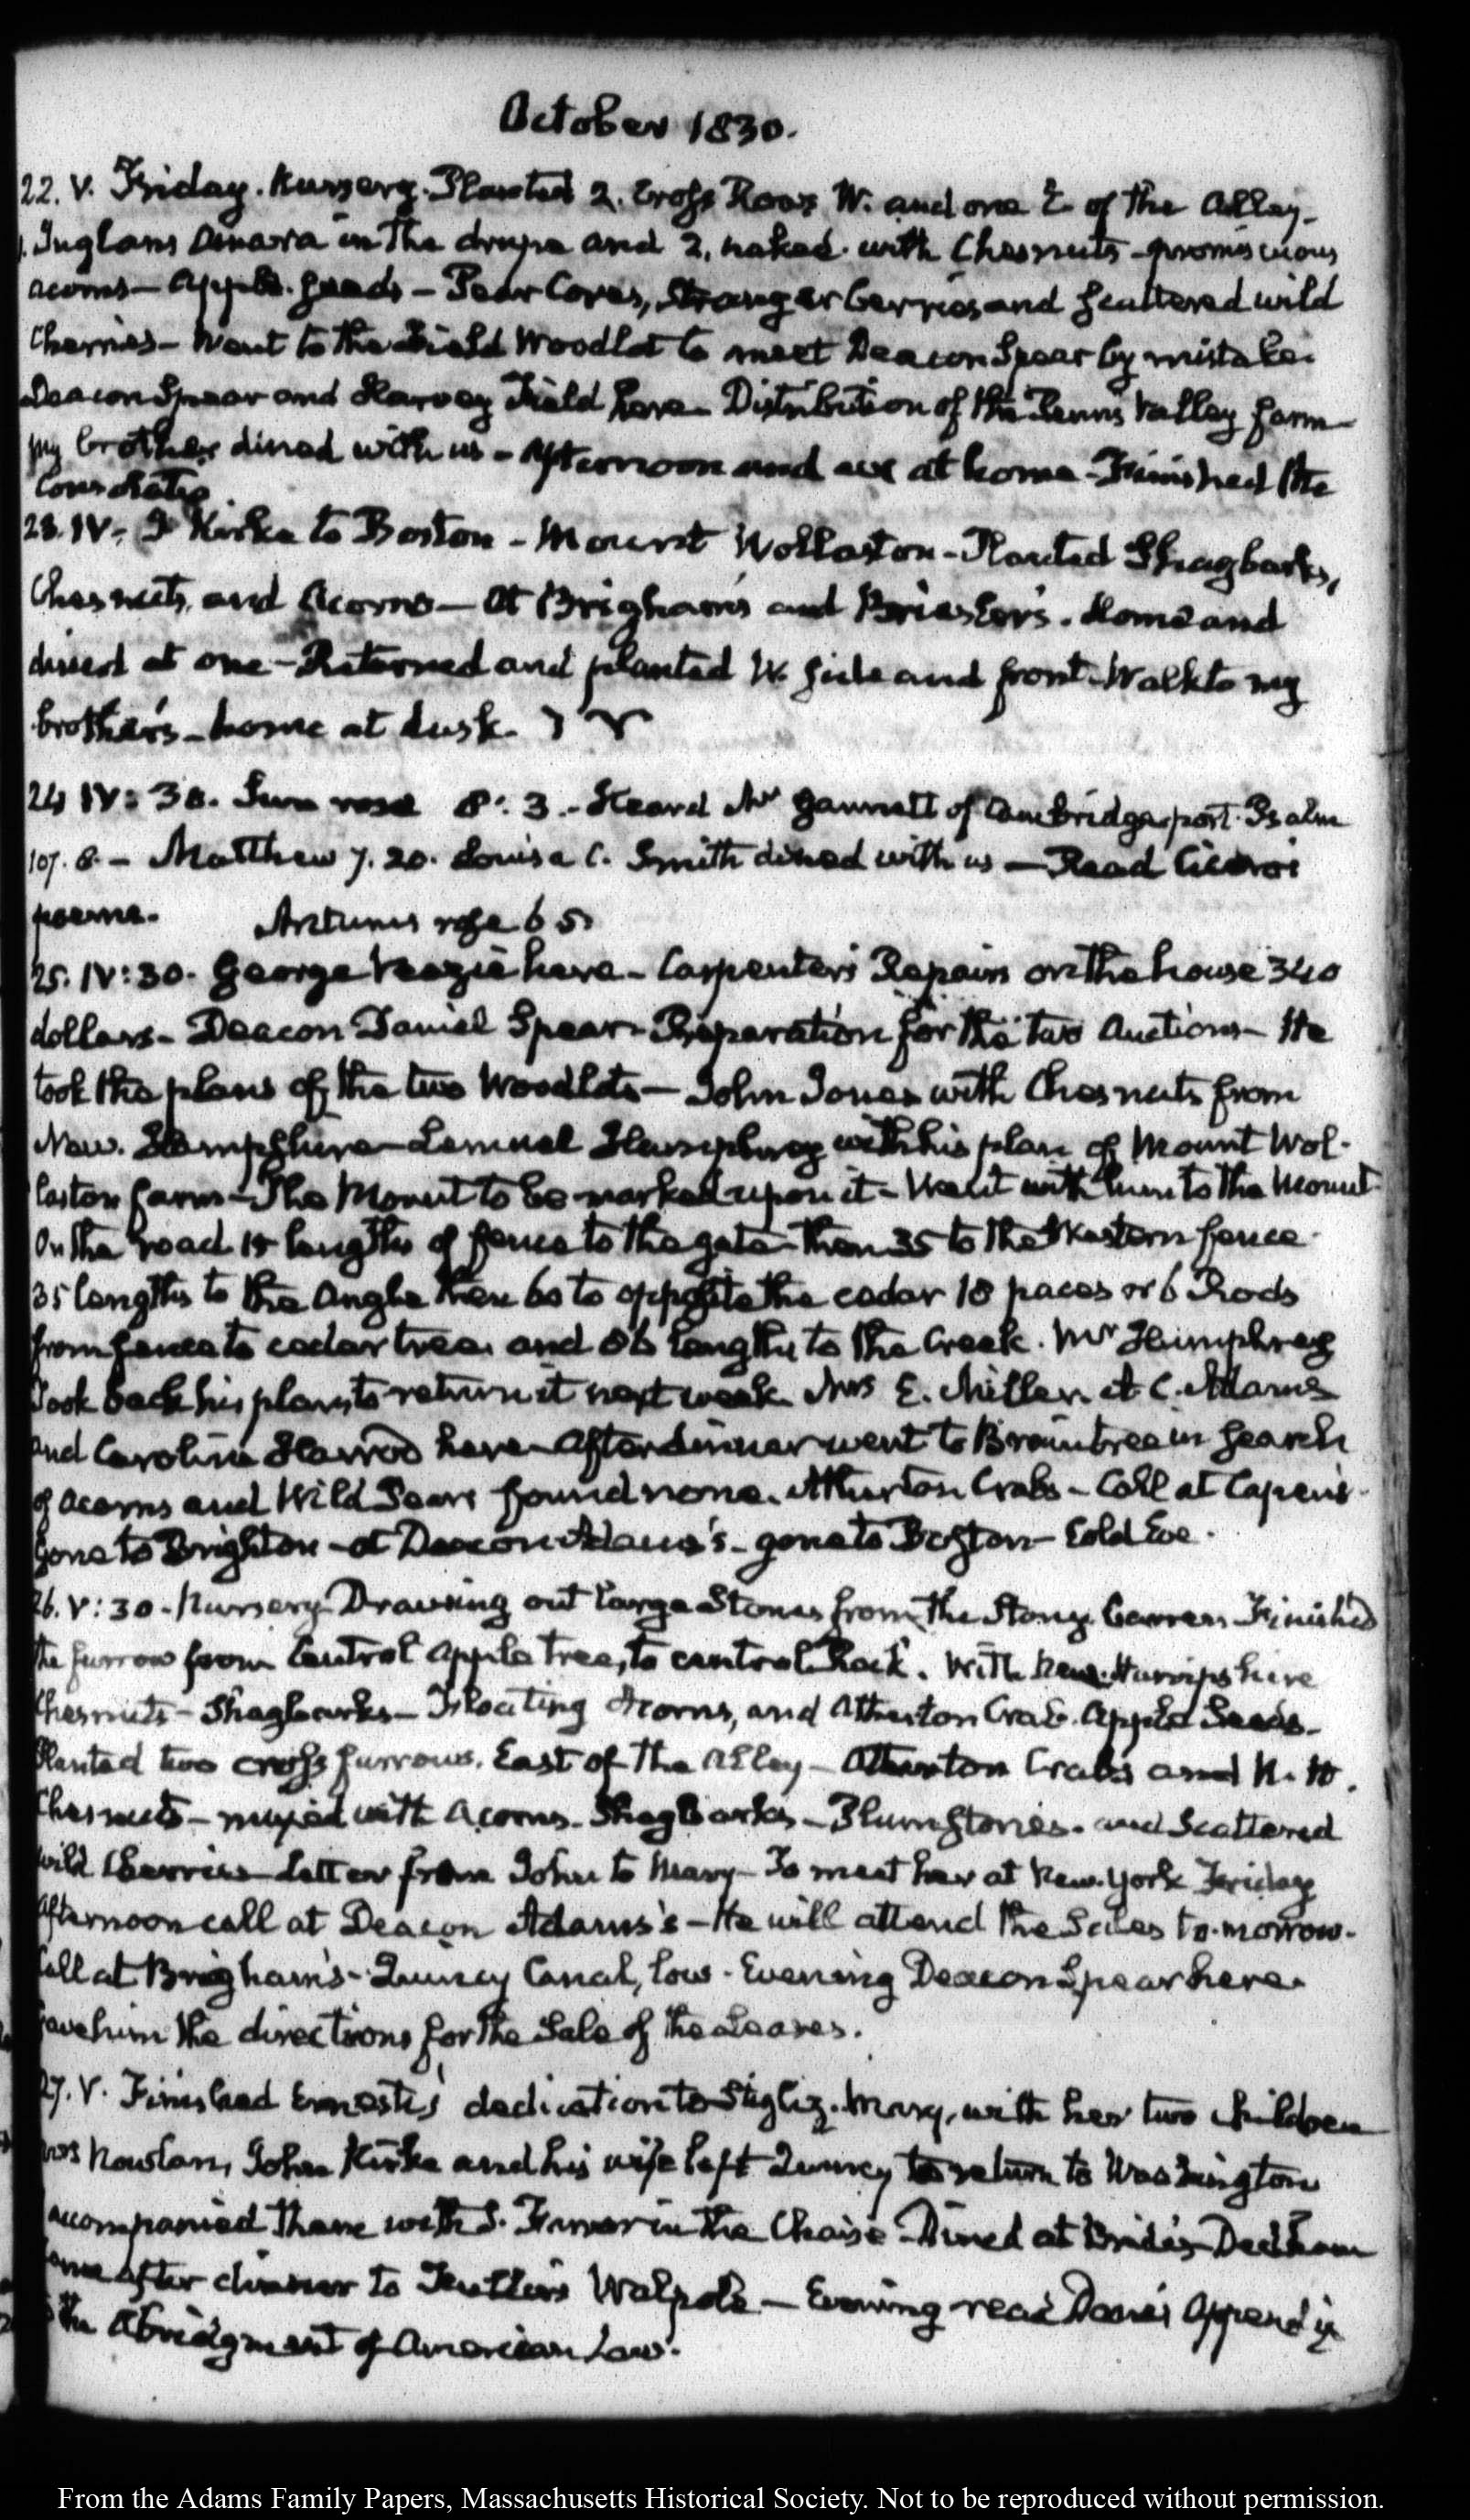 October 1830.
22. V. Friday. Nursery. Planted 2. Cross Rows W. and one E. of the Alley.
Juglans Amara in the drupe and 2. naked. with Chesnuts - promiscuous
acorns - Apple. seeds - Pear Cores, berries and scattered wild
Cherries - Went to the Field Woodlot to meet Deacon Spear by mistake.
Deacon Spear and Harvey Field here. Distribution of the Penns Valley farm -
my brother dined with us - Afternoon and eve at home - Finished the
Consolatio.
23. IV. J Kirke to Boston - Mount Wollaston - Planted Shagbarks,
Chesnuts, and Acorns - At Brigham's and Briesler's. Home and
dined at one - Returned and planted W. side and front - Walk to my
brother's - home at dusk.
24 IV: 30. Sun rose 8: 3. - Heard Mr Gannett of Cambridgeport. Psalm
107. 8. - Matthew 7. 20. Louisa C. Smith dined with us - Read Cicero's
poems. Arcturus rose 6 5
25. IV: 30. George Veazie here - Carpenter's Repairs on the house 340
dollars - Deacon Daniel Spear - Preparation for the two Auctions - He
took the plans of the two Woodlots - John Jones with Chesnuts from
New. Hampshire - Lemuel Humphrey with his plan of Mount Wol-
laston farm - The Mount to be marked upon it - Went with him to the Mount
On the road 15 lengths of fence to the gate - then 35 to the Western fence
35 lengths to the Angle then 60 to opposite the cedar 18 paces or 6 Rods
from fence to cedar tree, and 86 lengths to the Creek. Mr Humphrey
took back his plan, to return it next week. Mrs E. Miller, A. C. Adams
and Caroline Harrod here - After dinner went to Braintree in search
of acorns and Wild Pears found none. Atherton Crabs - Call at Capen's -
gone to Brighton - at Deacon Adams's - gone to Boston - Cold Eve.
26. V: 30 - Nursery Drawing out large Stones from the Stony Barren. Finished
the furrow from Central Apple tree, to central Rock. With New. Hampshire
Chesnuts - Shagbarks - Floating Acorns, and Atherton Crab. Apple Seeds -
Planted two cross furrows. East of the Alley - Atherton Crabs and N. H.
Chesnuts - mixed with Acorns - Shagbarks - Plumstones. and Scattered
wild Cherries - Letter from John to Mary - To meet her at New. York Friday
Afternoon call at Deacon Adams's - He will attend the Sales to-morrow -
Call at Brigham's - Quincy Canal, low - Evening Deacon Spear here.
gave him the directions for the Sale of the Leases.
27. V. Finished Ernesti's dedication to Stiglitz. Mary, with her two children
Mrs Nowlan, John Kirke and his wife left Quincy to return to Washington
accompanied them with S. Farmer in the Chaise - Dined at Bride's Dedham
came after dinner to Fuller's Walpole - Evening read Dane's Appendix
to the Abridgment of American Law.
From the Adams Family Papers, Massachusetts Historical Society. Not to be reproduced without permission.